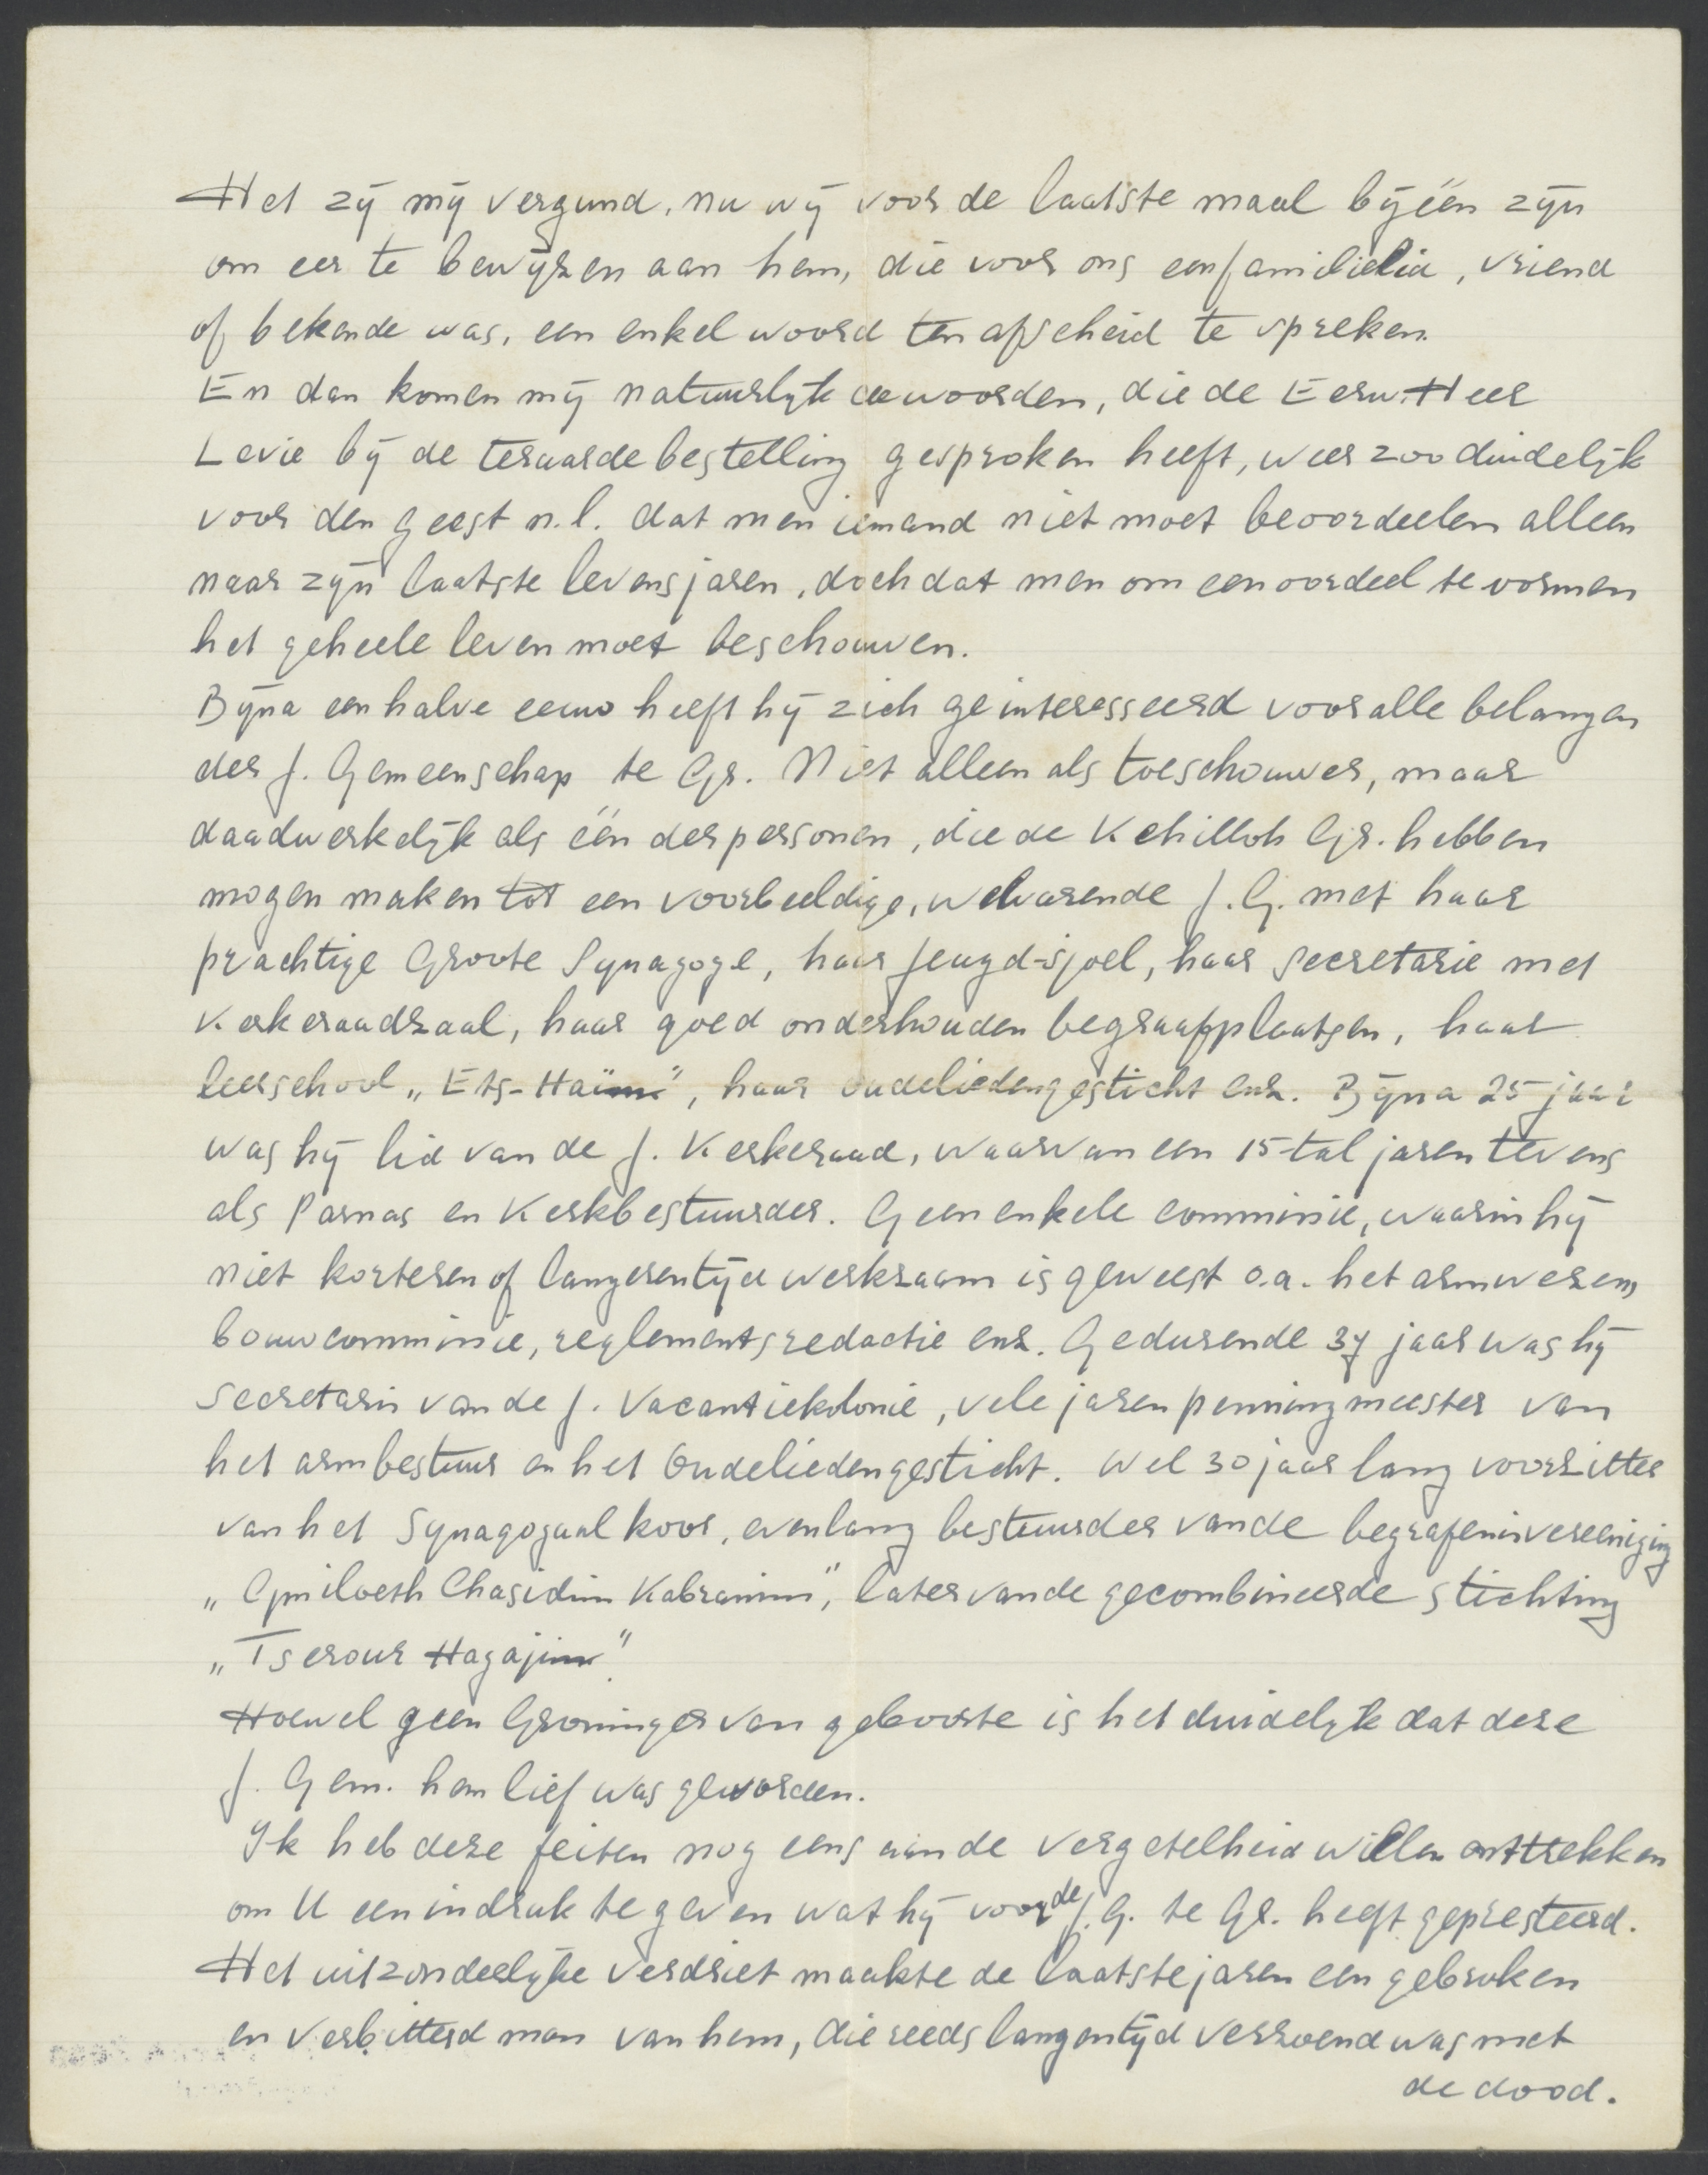 Het zij mij vergund, nu wij voor de laatste maal bijéén zijn
om eer te bewijzen aan hem, die voor ons een familielid, vriend
of bekende was, een enkel woord ten afscheid te spreken.
En dan komen mij natuurlijk de woorden, die de Eerw. Heer
Levie bij de teraardebestelling gesproken heeft, weer zoo duidelijk
voor den geest n.l. dat men iemand niet moet beoordeelen alleen
naar zijn laatste levensjaren, doch dat men om een oordeel te vormen
het geheele leven moet beschouwen.
Bijna een halve eeuw heeft hij zich geinteresseerd voor alle belangen
der J. Gemeenschap te Gr. Niet alleen als toeschouwer, maar
daadwerkelijk als één der personen, die de Kehilloh Gr. hebben
mogen maken tot een voorbeeldige, welvarende J.G. met haar
prachtige Groote Synagoge, haar Jeugd-sjoel, haar secretarie met
Kerkeraadzaal, haar goed onderhouden begraafpplaatsen, haar
leerschool „Ets-Haïm", haar oudeliedengesticht enz. Bijna 25 jaar
was hij lid van de J. Kerkeraad, waarvan een 15-tal jaren tevens
als Parnas en Kerkbestuurder. Geen enkele commissie, waarin hij
niet korteren of langeren tijd werkzaam is geweest o.a. het armwezen,
bouwcommissie, reglementsredactie enz. Gedurende 37 jaar was hij
secretaris van de J. Vacantiekolonie, vele jaren penningmeester van
het armbestuur en het Oudeliedengesticht. Wel 30 jaar lang voorzitter
van het Synagogaal koor, evenlang bestuurder van de begrafenisvereeniging
„Gmiloeth Chasidim Kabranim", later van de gecombineerde stichting
„Tserour Hagajim"
Hoewel geen Groninger van geboorte is het duidelijk dat deze
J. Gem. hem lief was geworden.
Ik heb deze feiten nog eens aan de vergetelheid willen onttrekken
om U een indruk te geven wat hij voor de J.G. te Gr. heeft gepresteerd.
Het uitzonderlijke verdriet maakte de laatste jaren een gebroken
en verbitterd man van hem, die reeds langen tijd verzoend was met
de dood.